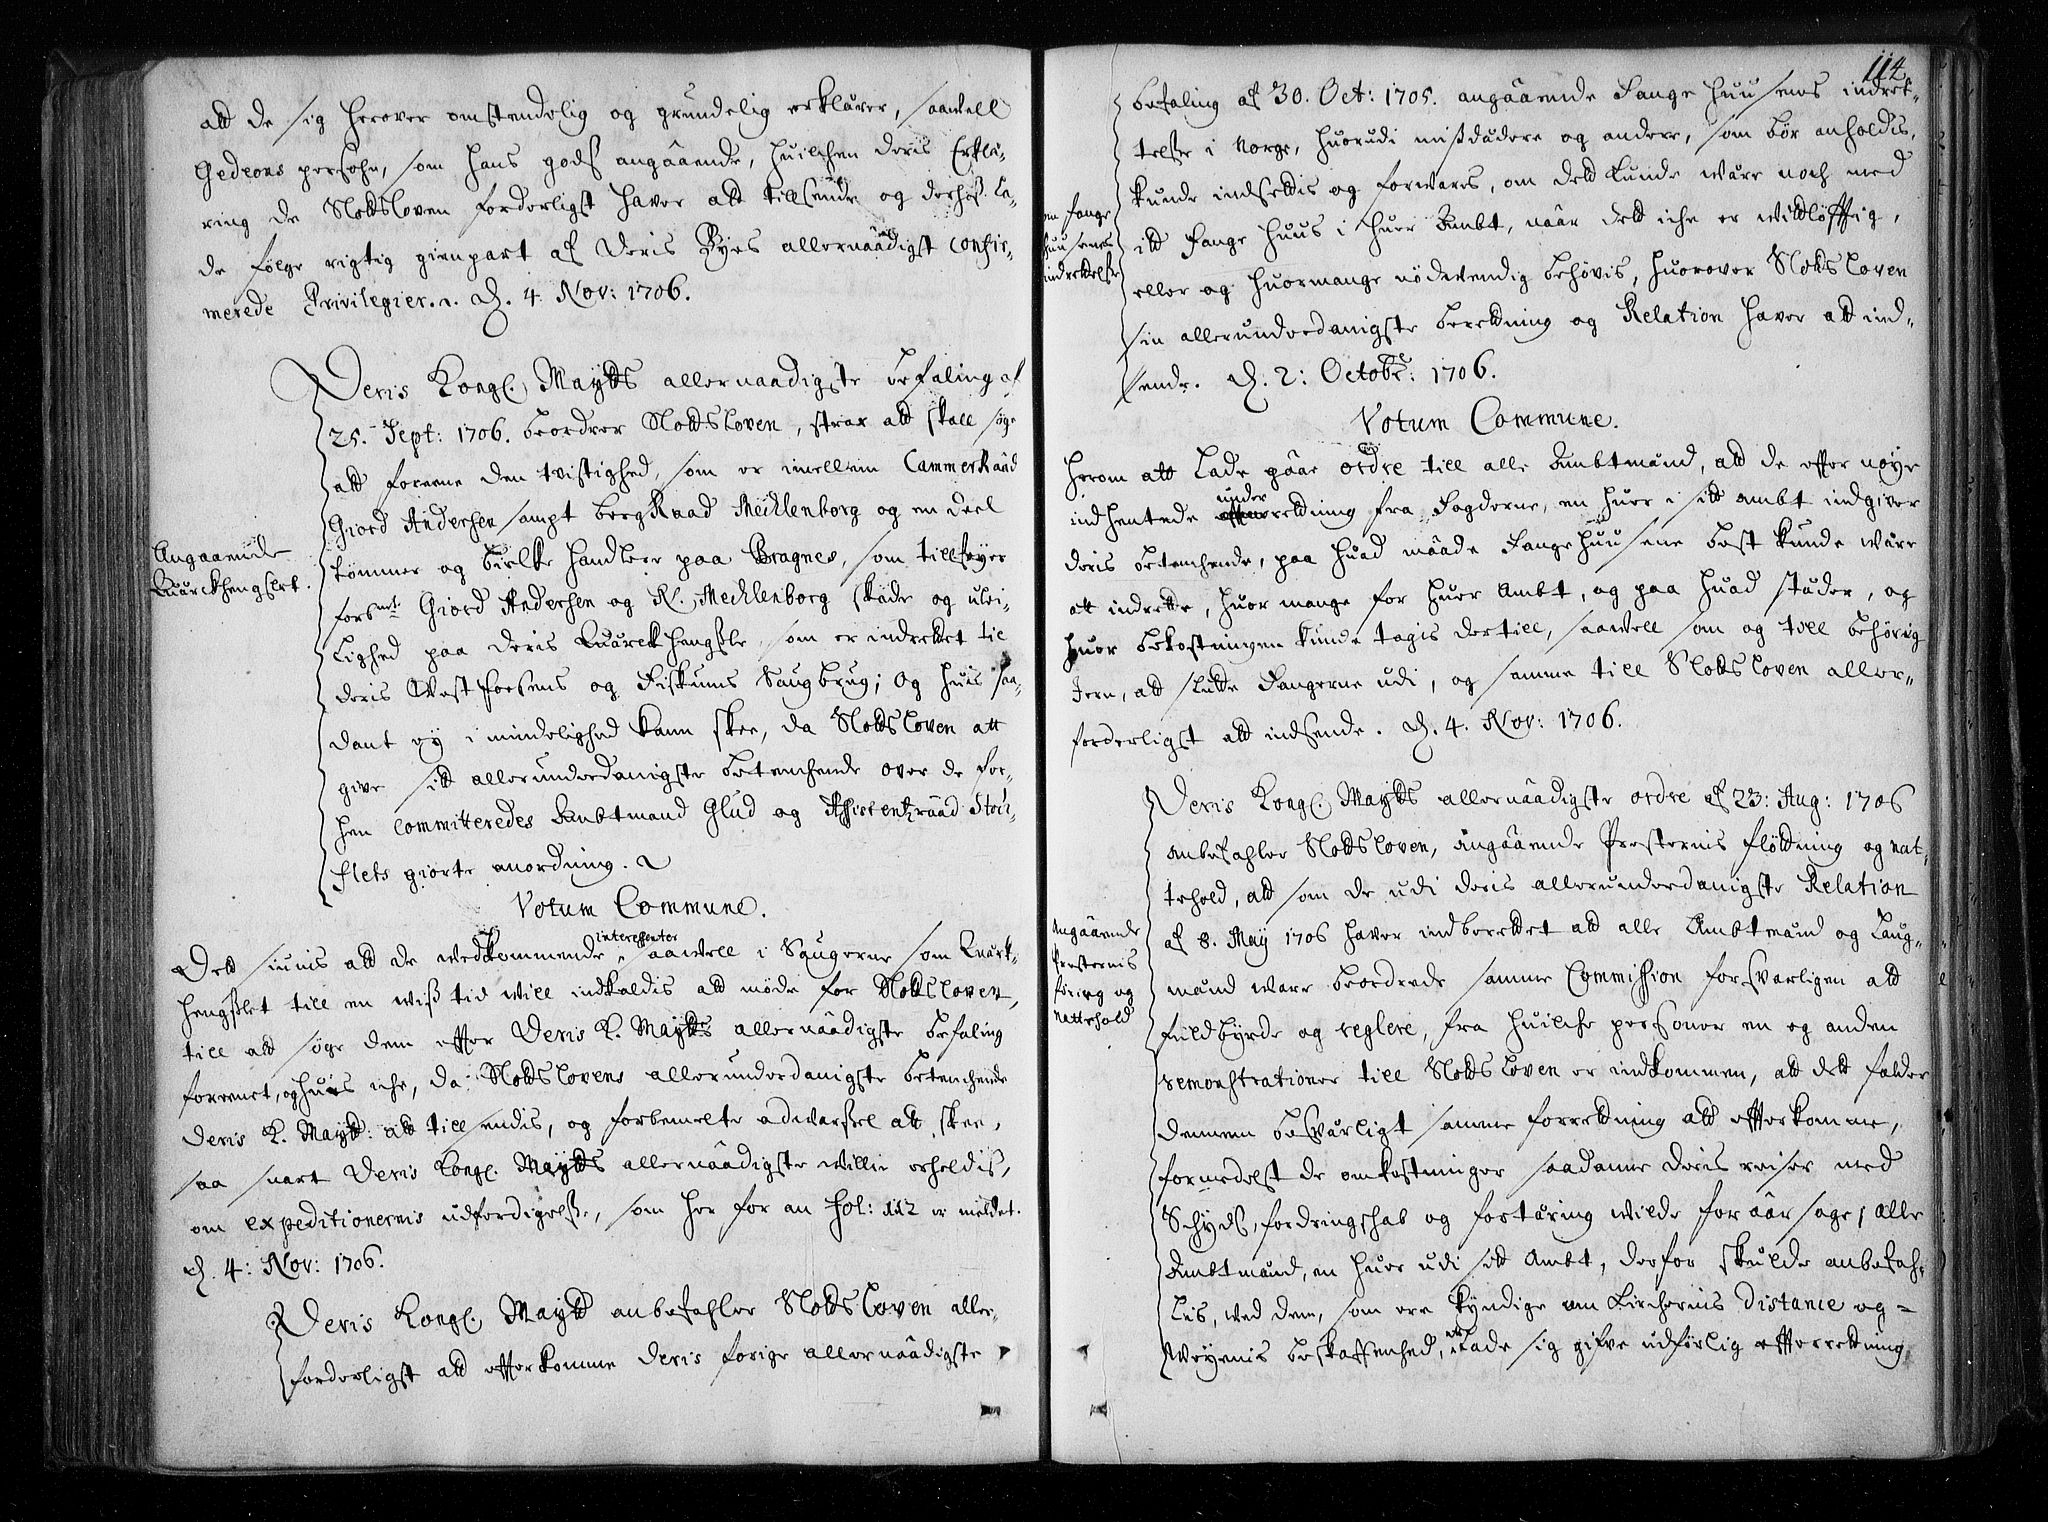 att de sig herover omstendelig og grundelig erklærer, saavell
Gedeons persohn, som hans gods angaaende, huilchen deris Erklæ-
ring de Slotsloven forderligst haver att tillsende og derhos la-
de følge rigtig gienpart af deris Byes allernaadigst confir-
merede Privilegier. d. 4 Nov: 1706.
Deris Kongl. Maytts allernaadigste befaling af
25. Sept: 1706. beordrer Slotsloven, strax att skall søge
att foreene den tvistighed, som er imellem CammerRaad
Giord Andersen sampt bergRaad Mechlenborg og en deel
tømmer og bielke handler paa Bragnes, som tillføyer
Angaaende
Quærckhengslet.
forsnt. Giord Andersen og R. Mechlenborg skade og ulei-
lighed paa deris Quærckhengsle, som er indrettet til
deris Westfossens og Fiskums Saugbrug; Og huis saa-
dant ey i mindelighed kann skee, da Slotsloven att
give sitt allerunderdanigste betenchende over de for-
hen committeredes Ambtmand Glud og Assistentzraad Stoc-
flets giorte anordning.
Votum Commune.
Det siunis att de wedkommende interessenter saavell i Saugerne som Quærk-
hengslet till en wiss tid will indkaldis att møde for Slotsloven,
till att søge dem effter Deris K. Maytts allernaadigste befaling
foreenet, og huis iche, da Slotslovens allerunderdanigste betenchende
Deris K. Maytt: att tillsendis, og forbemelte advarsel att skee,
saa snart Deris Kongl. Maytts allernaadigste willie erholdis,
om expeditionernis udferdigelse, som her for an fol: 112 er meldet.
d. 4: Nov: 1706.
Deris Kongl. Maytt anbefahler Slotsloven aller-
forderligst att efferkomme deris forige allernaadigste
114
befaling af 30. Oct: 1705. angaaende Fange Huusenes indret-
telse i Norge, huorudi misdædere og andere, som bør anholdis,
kunde indsettis og forwares, om det kunde være noch med
en fange
huusenes
indrettelse
itt Fange Huus i huer Ambt, naar det iche er widtløfftig,
eller og huormange nødvendig behøvis, huorover Slotsloven
sin allerunderdanigste beretning og Relation haver att ind-
sende. d. 2: Octobr: 1706.
Votum Commune.
Herom att lade gaae ordre till alle Ambtmænd, att de effter nøye
indhentede underretning fra Fogderne, en huer i sitt ambt indgiver
deris betenchende, paa huad maade Fangehuusene best kunde være
att indrette, huor mange for huer Ambt, og paa huad stæder, og
huor bekostningen kunde tagis dertill, saawell som og till behørig
Jern, att slutte Fangerne udi, og samme till Slotsloven aller-
forderligst att indsende. d. 4. Nov: 1706.
Deris Kongl. Maytts allernaadigste ordre af 23: Aug: 1706
anbefahler Slotsloven, angaaende Presternis fløttning og nat-
tehold, att som de udi deris allerunderdanigste Relation
Angaaende
Presternis
føring og
Nattehold
af 8. May 1706 haver indberettet att alle Ambtmænd og Laug-
mænd ware beordrede samme Commission forsvarligen att
fuldbyrde og reglere, fra huilche personer en og anden
remonstrationer till Slotsloven er indkommen, att dett falder
dennem besværligt samme forretning att efferkomme,
formedelst de omkostninger saadanne deris reiser med
Schyds, fordringschab og fortæring wilde foraarsage, alle
Ambtmænd, en huer udi sitt Ambt, derfor skulde anbefah-
lis, ved dem, som ere kyndige om Kirchernis distance og
Weyenis beskaffenhed, att lade sig gifve udførlig efferretning